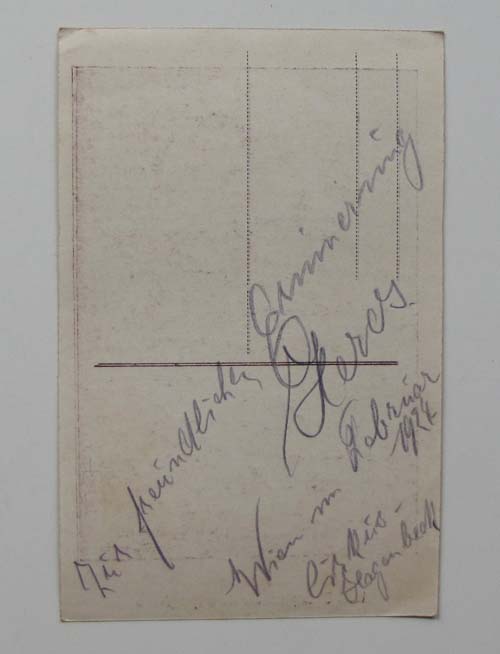 Zur freundlichen Erinnerung
Wien im Februar
1924
Cirkus-
Hagenbeck